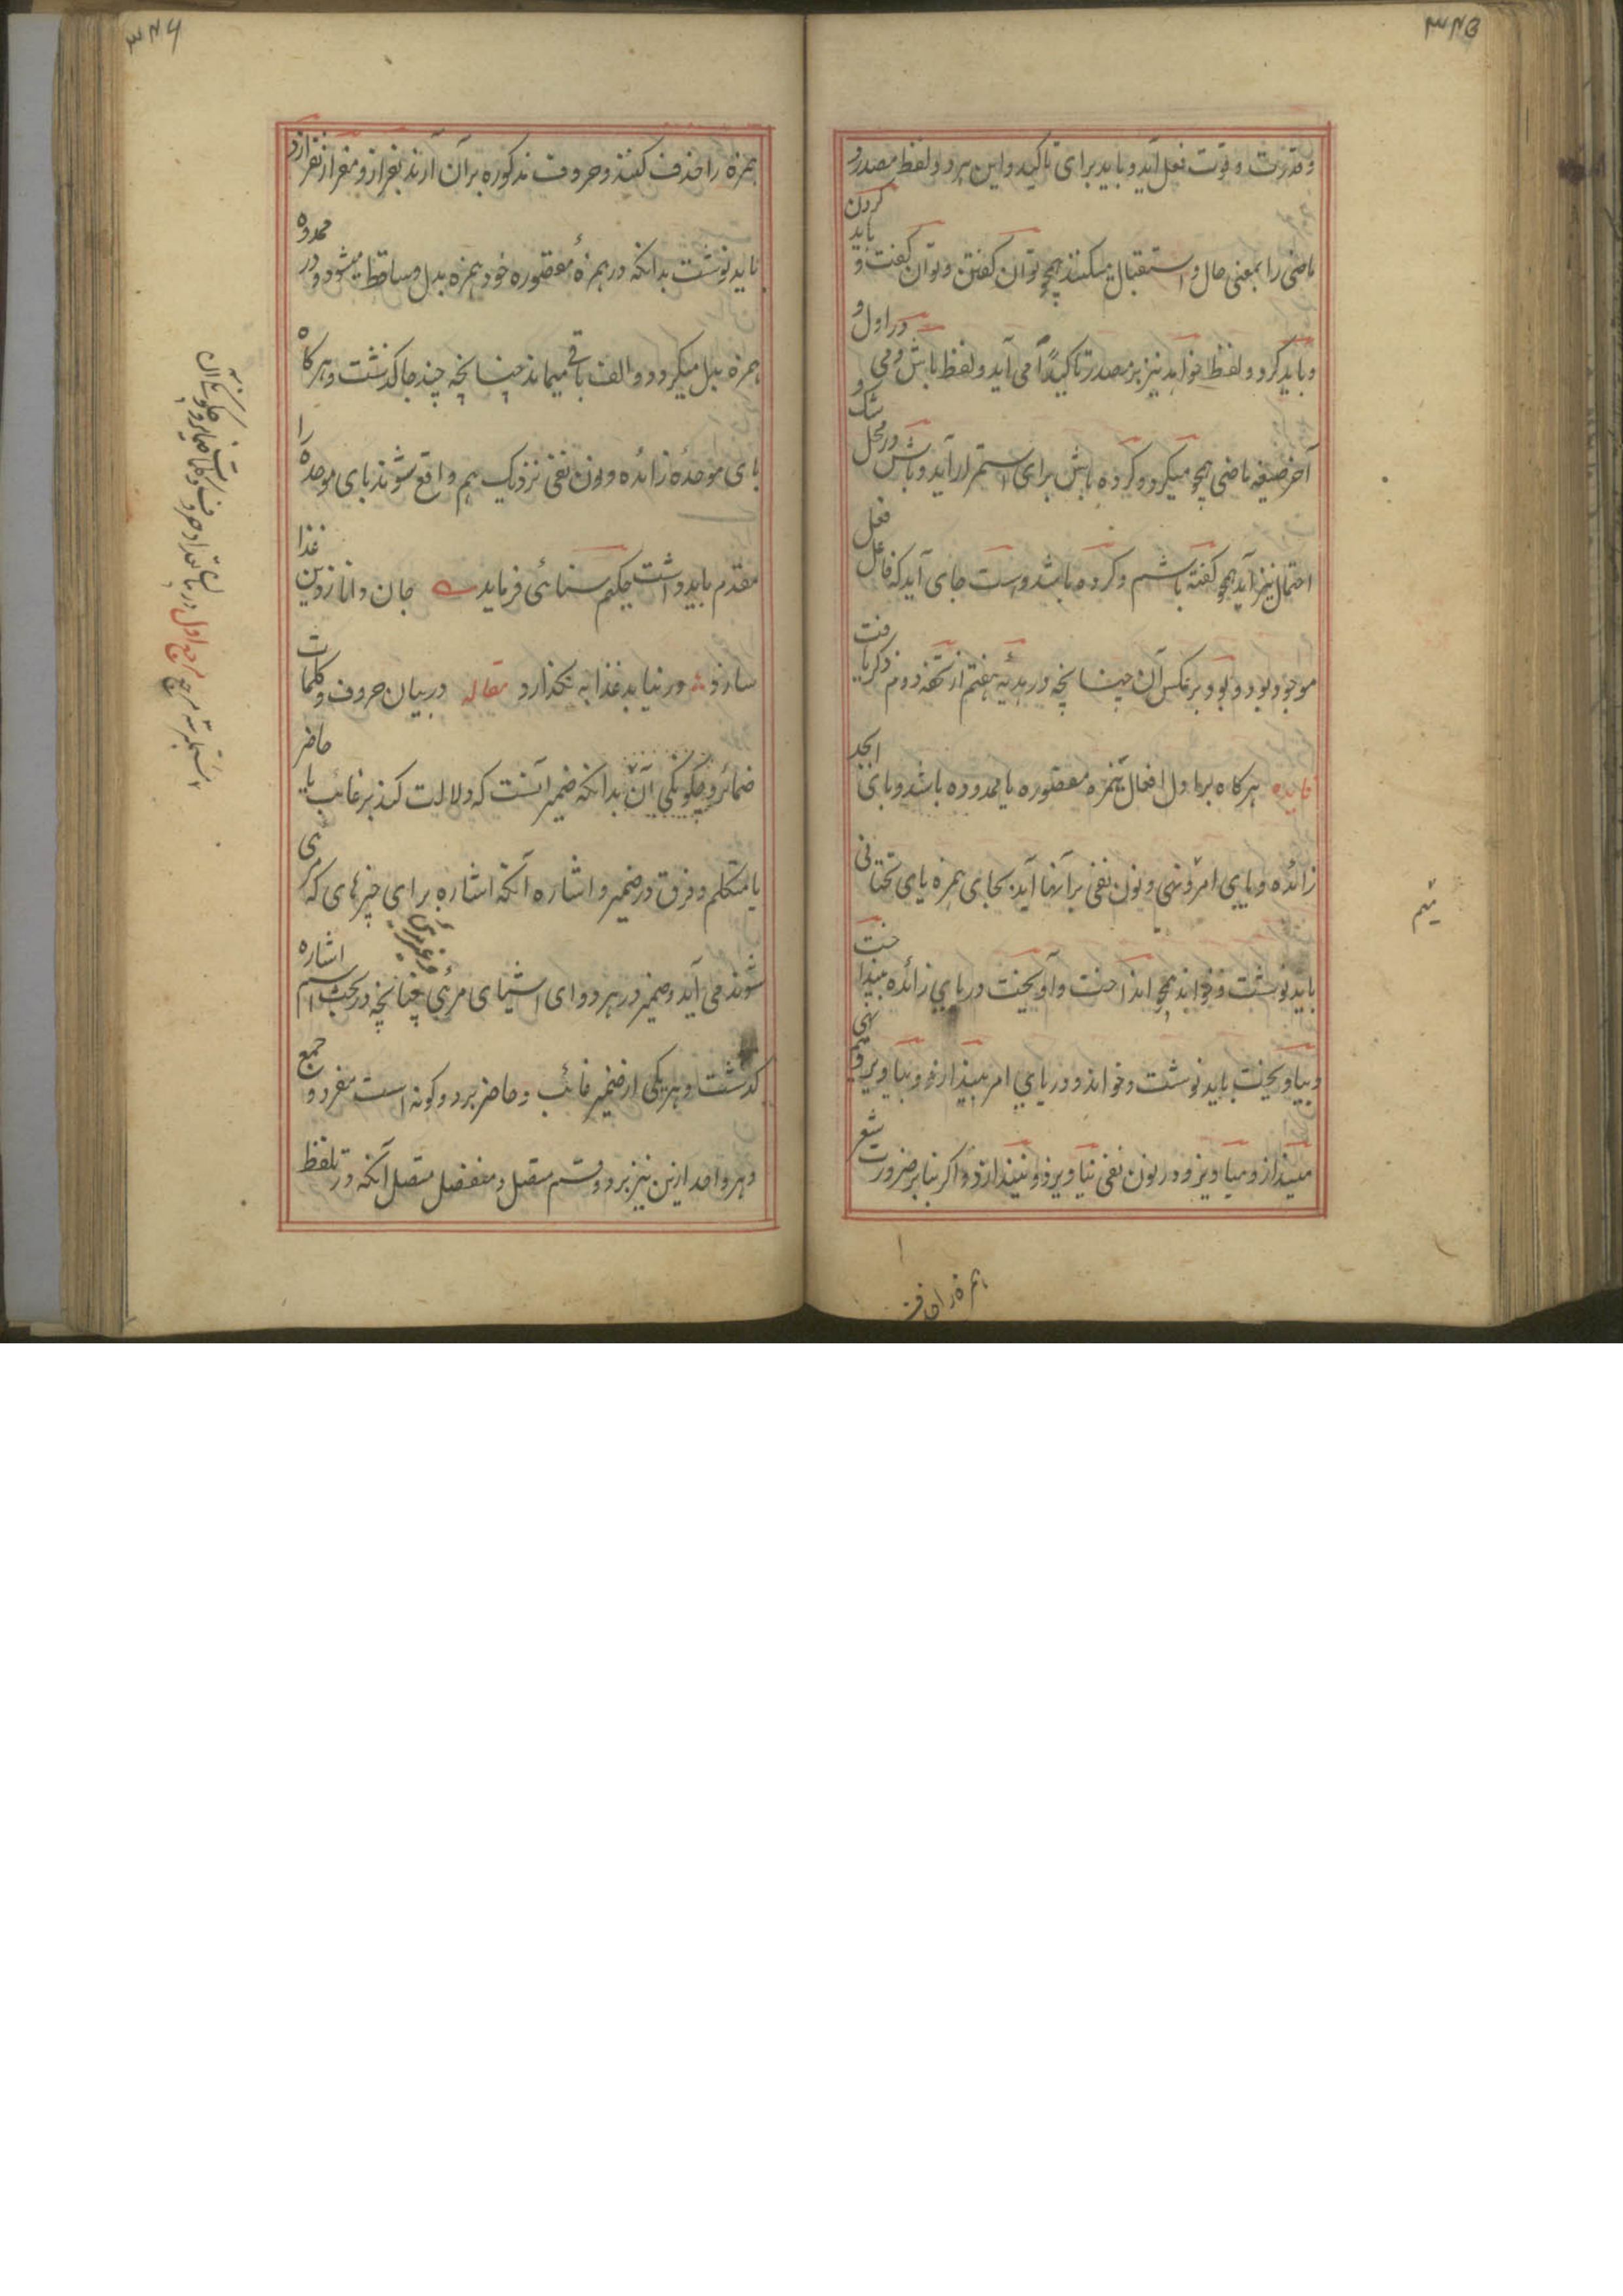 ۳۴۵
و قدرت و قوت فعل آید و باید برای تاکید و این هر دو لفظ مصدر و
ماضی را بمعنی حال و استقبال میکنند همچو توان گفتن و توان گفت و باید کردن
و باید کرد و لفظ خواهد نیز بر مصدر تاکیداً می آید و لفظ باش و می در اول و
آخر صیغه ماضی همچو میکرد و کرده باش برای استمرار آید و باش در محل شک و
احتمال نیز آید همچو گفته باشم و کرده باشد و است جای آید که فاعل فعل
موجود بود و بود بر عکس آن چنانچه در هدیه هفتم از تحفه دوم ذکر یافت
قاعده هرگاه بر اول افعال همزه مقصوره یا ممدوده باشد و بای ابجد
زائده و یا بای امر و نهی و نون نفی بر آنها آید بجای همزه یای تحتانی
باید نوشت و خواند همچو انداخت و آویخت در بای زائده بینداخت
و بیاویخت باید نوشت و خواند و در بای امر بینداز و بیاویز و میم نهی
مینداز و میاویز و در نون نفی نیاویزد و نیندازد و اگر بنا بر ضرورت شعر
همزه را حذف
۳۴۶
همزه را حذف کنند و حروف مذکوره بر آن آرند بفراز و مفراز نفرازد
باید نوشت بدانکه در همزهٔ مقصوره خود همزه بدل و ساقط میشود و در ممدوده
همزه بدل میگردد و الف باقی میماند چنانچه چند جا گذشت و هرگاه
بای موحده زائده و نون نفی نزدیک هم واقع شوند بای موحده را
مقدم باید داشت حکیم سنائی فرماید جان دانا ز دین غذا
سازد ور نیابد غذا به نگذارد مقاله در بیان حروف و کلمات
ضمائر و چگونگی آن بدانکه ضمیر آنست که دلالت کند بر غائب یا حاضر
یا متکلم و فرق در ضمیر و اشاره آنکه اشاره برای چیزهای که مرئی
شوند می آید و ضمیر در هر دو ای اشیای مرئی و غیر مرئی چنانچه در بحث اسم اشاره
گذشت و هر یکی از ضمیر غائب و حاضر بر دو گونه است مفرد و جمع
و هر واحد ازین نیز بر دو قسم متصل و منفصل متصل آنکه در تلفظ